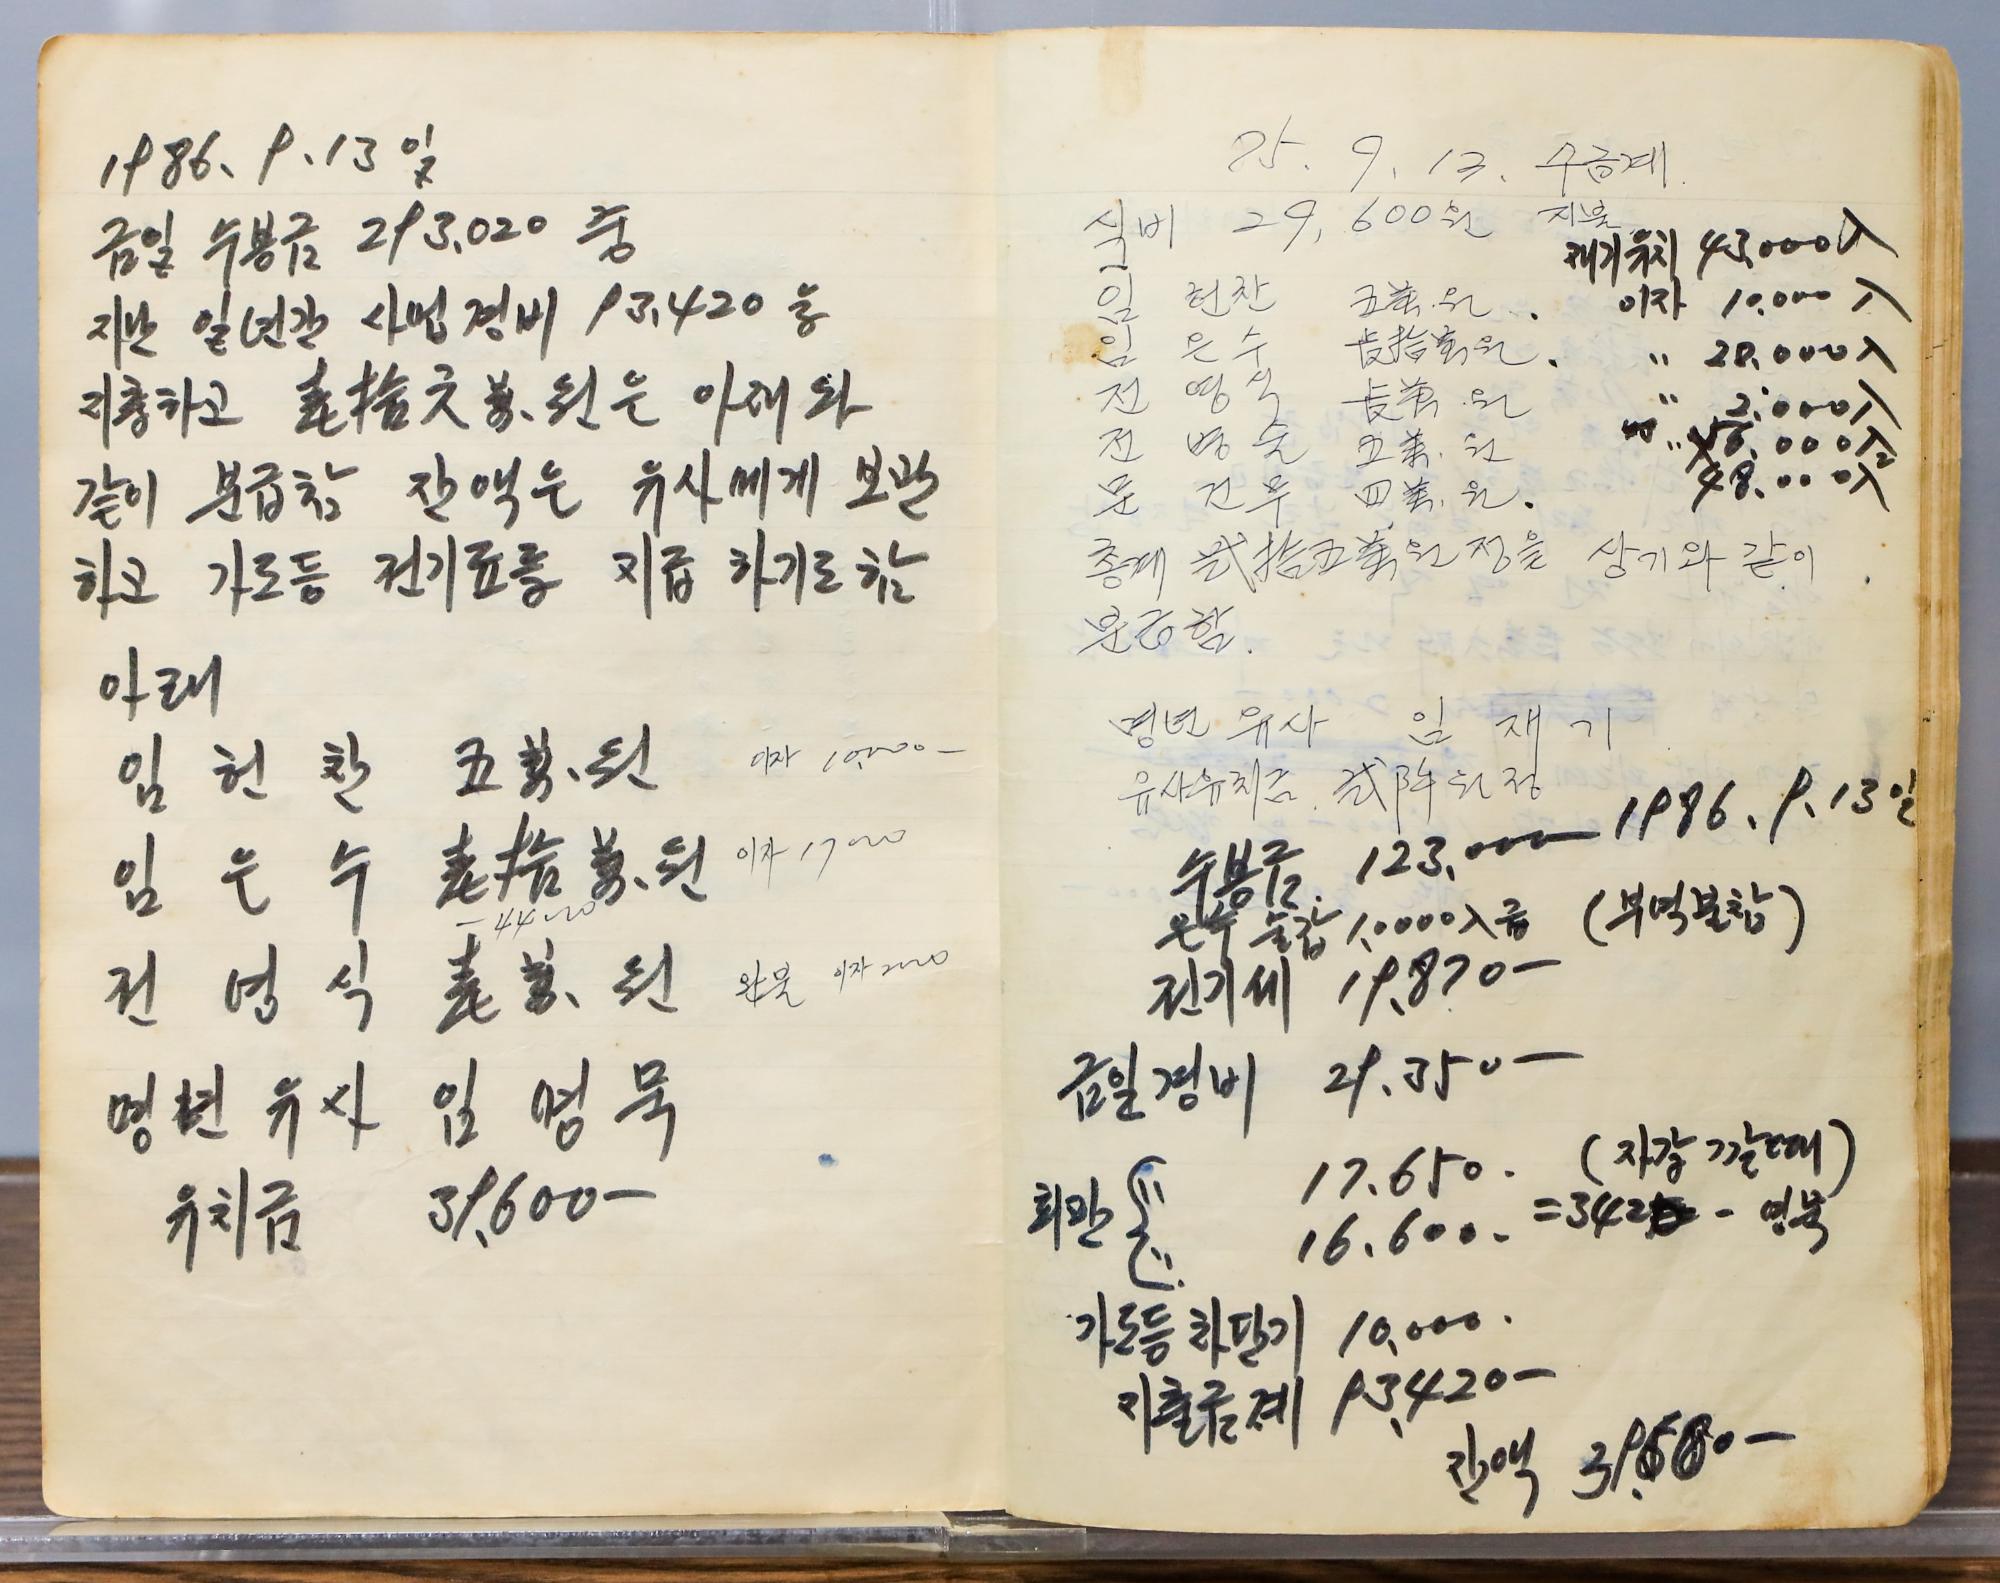 1986. 9. 13일
금일 수봉금 293,020 중
지난 일년간 사업경비 93,420을
지출하고 壹拾六萬.원은 아래와
같이 분급함 잔액은 유사에게 보관
하고 가로등 전기료를 지급 하기로함
아래
임 헌 찬 五萬.원 이자 10,000-
임 은 수 壹拾萬.원 이자 17000
-44000
전 영 식 壹萬.원 완불 이자 2000
명년 유사 임 영 묵
유치금 39,600-
85. 9. 13. 수금계.
식비 29,600원 지불
재기유치 43,000入
임 헌찬 五萬.원. 이자 10.000入
임 은수 壹拾萬원. 〃 20.000入
전 영식 壹萬.원 〃 2.000入
전 병순 五萬.원 〃 6.000入
문 건무 四萬.원. 48.000入
총계 貳拾五萬원정을 상기와 같이
분급함.
명년 유사 임 재 기
유사유치금. 원정
1986. 9. 13일
수봉금. 123.000
은수 논갑 1,0000入금 (부역불참)
전기세 19.870-
금일경비 29.350-
17.650. (자갈 깔때)
회관 16.600. = - 영묵
가로등 차단기 10,000.
지출금계 93,420-
잔액